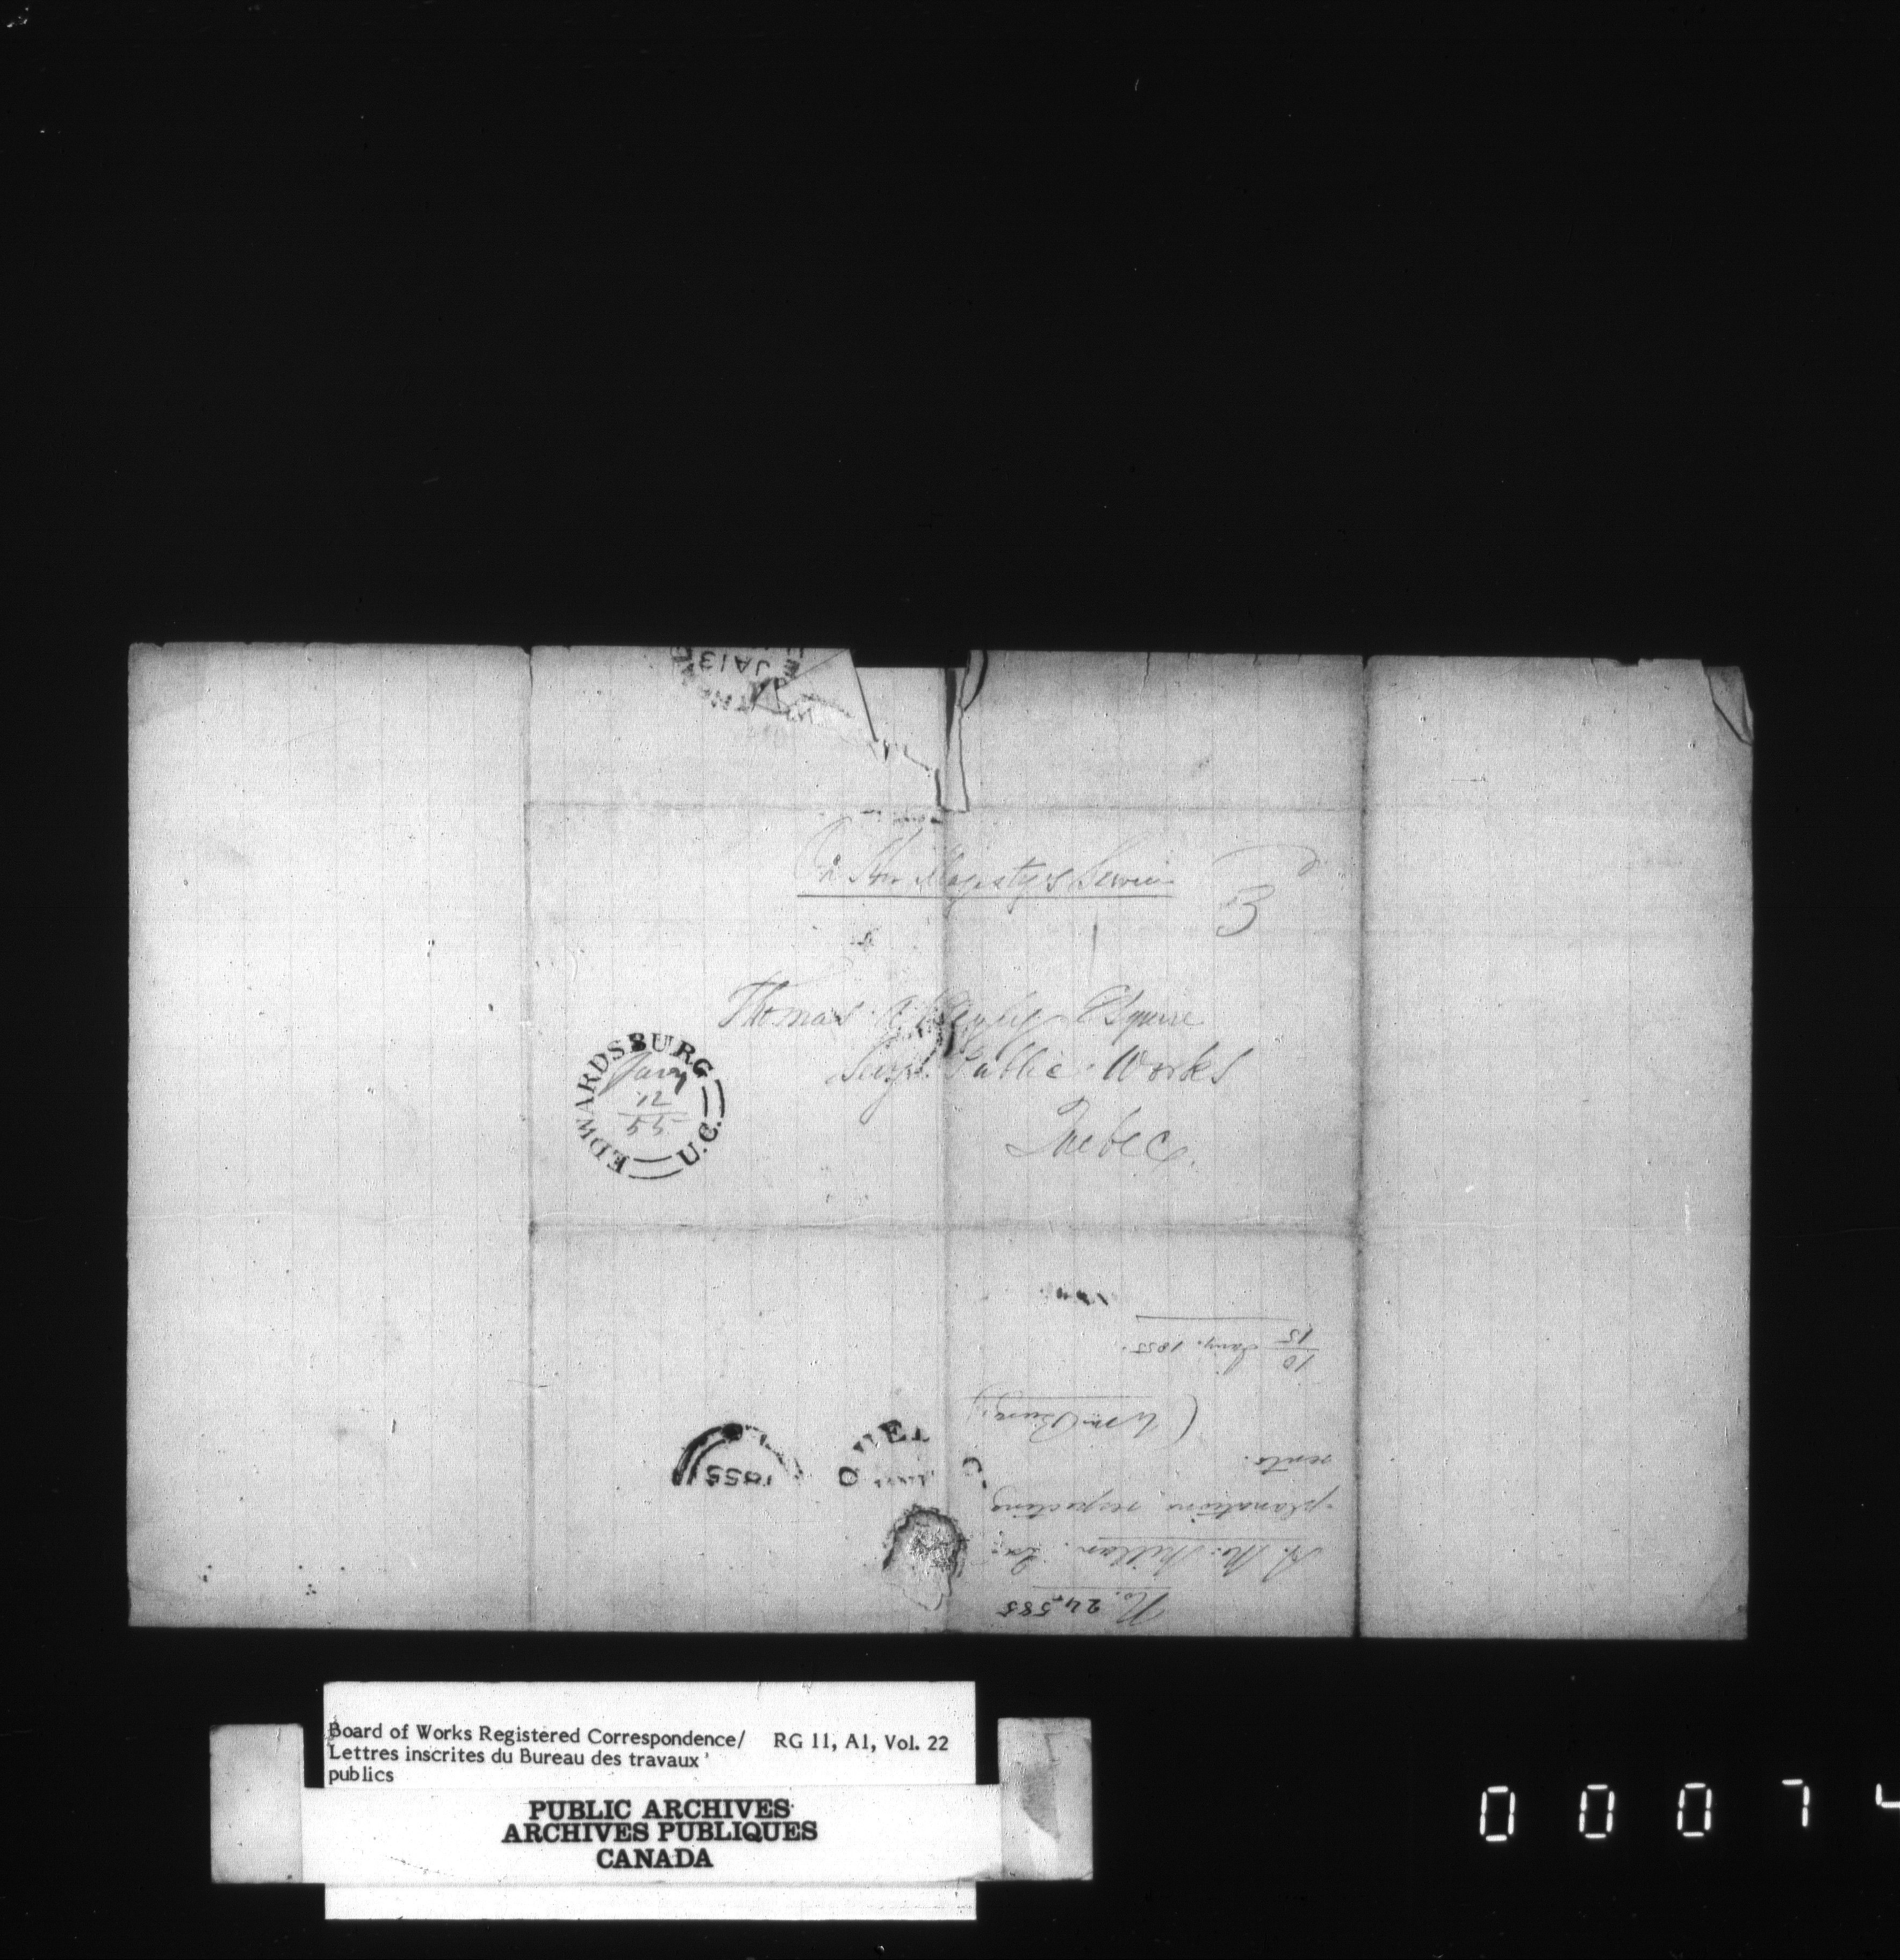 JA13
On Her Majesty's Service
3
Thomas A Begly Esquire
Secy. Public Works
Quebec.
EDWARDSBURG
U.C.
Jany
12
55
No. 24,585
A. McMillan. Ex-
planations respecting
rents.
(Wmsburg.)
10
15 Jany. 1855.
1855
QUEBEC
Board of Works Registered Correspondence/ RG 11, A1, Vol. 22
Lettres inscrites du Bureau des travaux
publics
PUBLIC ARCHIVES
ARCHIVES PUBLIQUES
CANADA
0 0 0 7 4